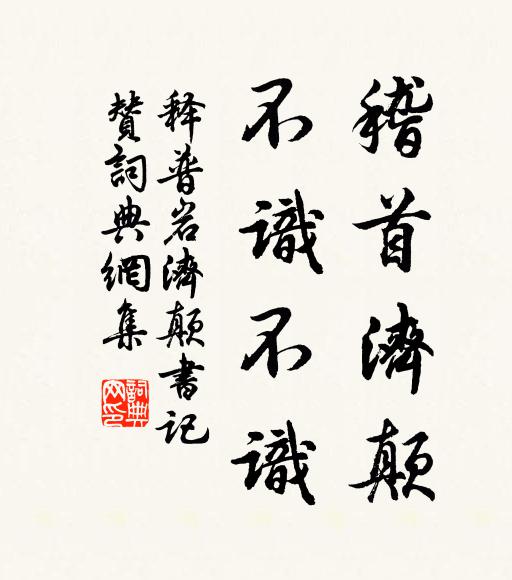 稽首濟顛
不識不識
释普岩濟顛書记
贊詞典網集
詞典
网印